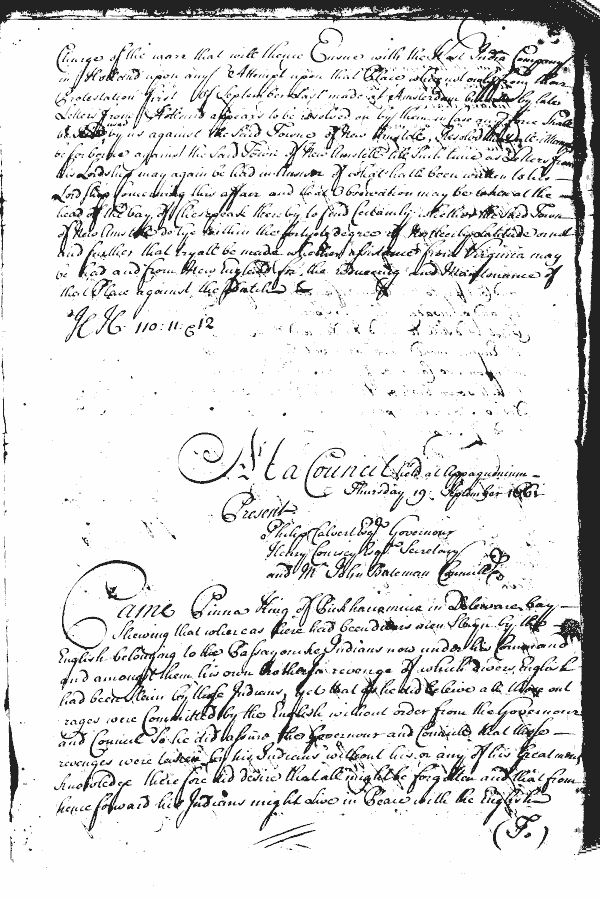 Charge of the warr that will thence Ensue with the West India Company
in Holland upon any Attempt upon that Place
Protestation first of September last made at Amsterdam by late
Letters from Holland appears to be resolved on by them in case any force shall
be used by us against the Said Towne of New Amstell, Resolved that all attempts
be forborne against the Said Towne of New Amstell till Such time as Letters from
his Lordship may again be had in answer of what hath been written to his
Lordship concerning this affair and that Observation may be taken at the
head of the bay of Chesepeak thereby to find Certainly whether the Said Town
of New Amstell do lye within the fortyeth degree of Northerly Latitude or not
and further that tryall be made whether assistance from Virginia may
be had and from New England for the reducing and Maintenance of
that Place against the Dutch
H H: 110: 11: @ 12
At a Council held at Appaquimim
Thursday 19: September 1661
Present
Philip Calvert Esqr Governour
Henry Coursey Esqr Secretary
and Mr John Bateman Councillr
Came Pinna King of Pickhattomitta in Delaware bay
Shewing that whereas there had been divers men Slayn by the
English belonging to the Passayonke Indians now under his Command
and amongst them his own brother in revenge of which divers English
had been Slain by these Indians, yet that as he did beleive all those out
rages were Committed by the English without order from the Governour
and Council So he did assure the Governour and Councill that these
revenges were taken by his Indians without his or any of his Great mens
knowledge therefore did desire that all might be forgotten and that from
hence forward his Indians might live in Peace with the English